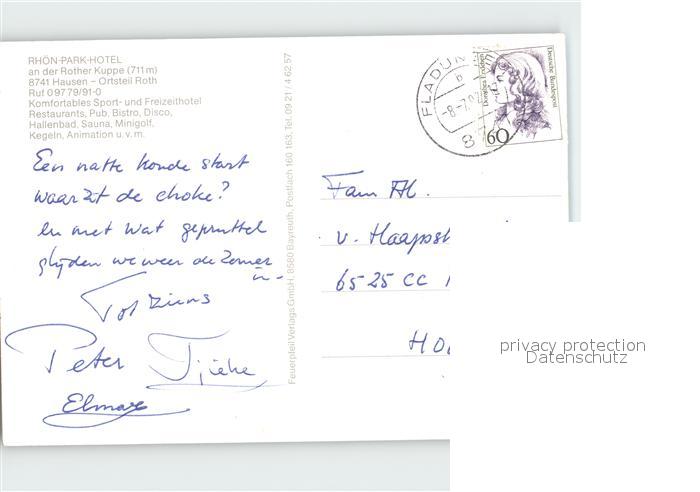 RHÖN-PARK-HOTEL
an der Rother Kuppe (711m)
8741 Hausen – Ortsteil Roth
Ruf 09779/91-0
Komfortables Sport- und Freizeithotel
Restaurants, Pub, Bistro, Disco,
Hallenbad, Sauna, Minigolf,
Kegeln, Animation u.v.m.
Een natte koude start
waar zit de choke?
en met wat gepruttel
glijden we weer de zomer
in-
Tot ziens
Peter Tjieke
Elmar
Feuerpfeil Verlags GmbH, 8580 Bayreuth, Postfach 160 163, Tel. 09 21 / 4 62 57
FLADUN
b
-8-7.
Deutsche Bundespost
60
Fam
v. Haapst
6525 CC
HO
privacy protection
Datenschutz